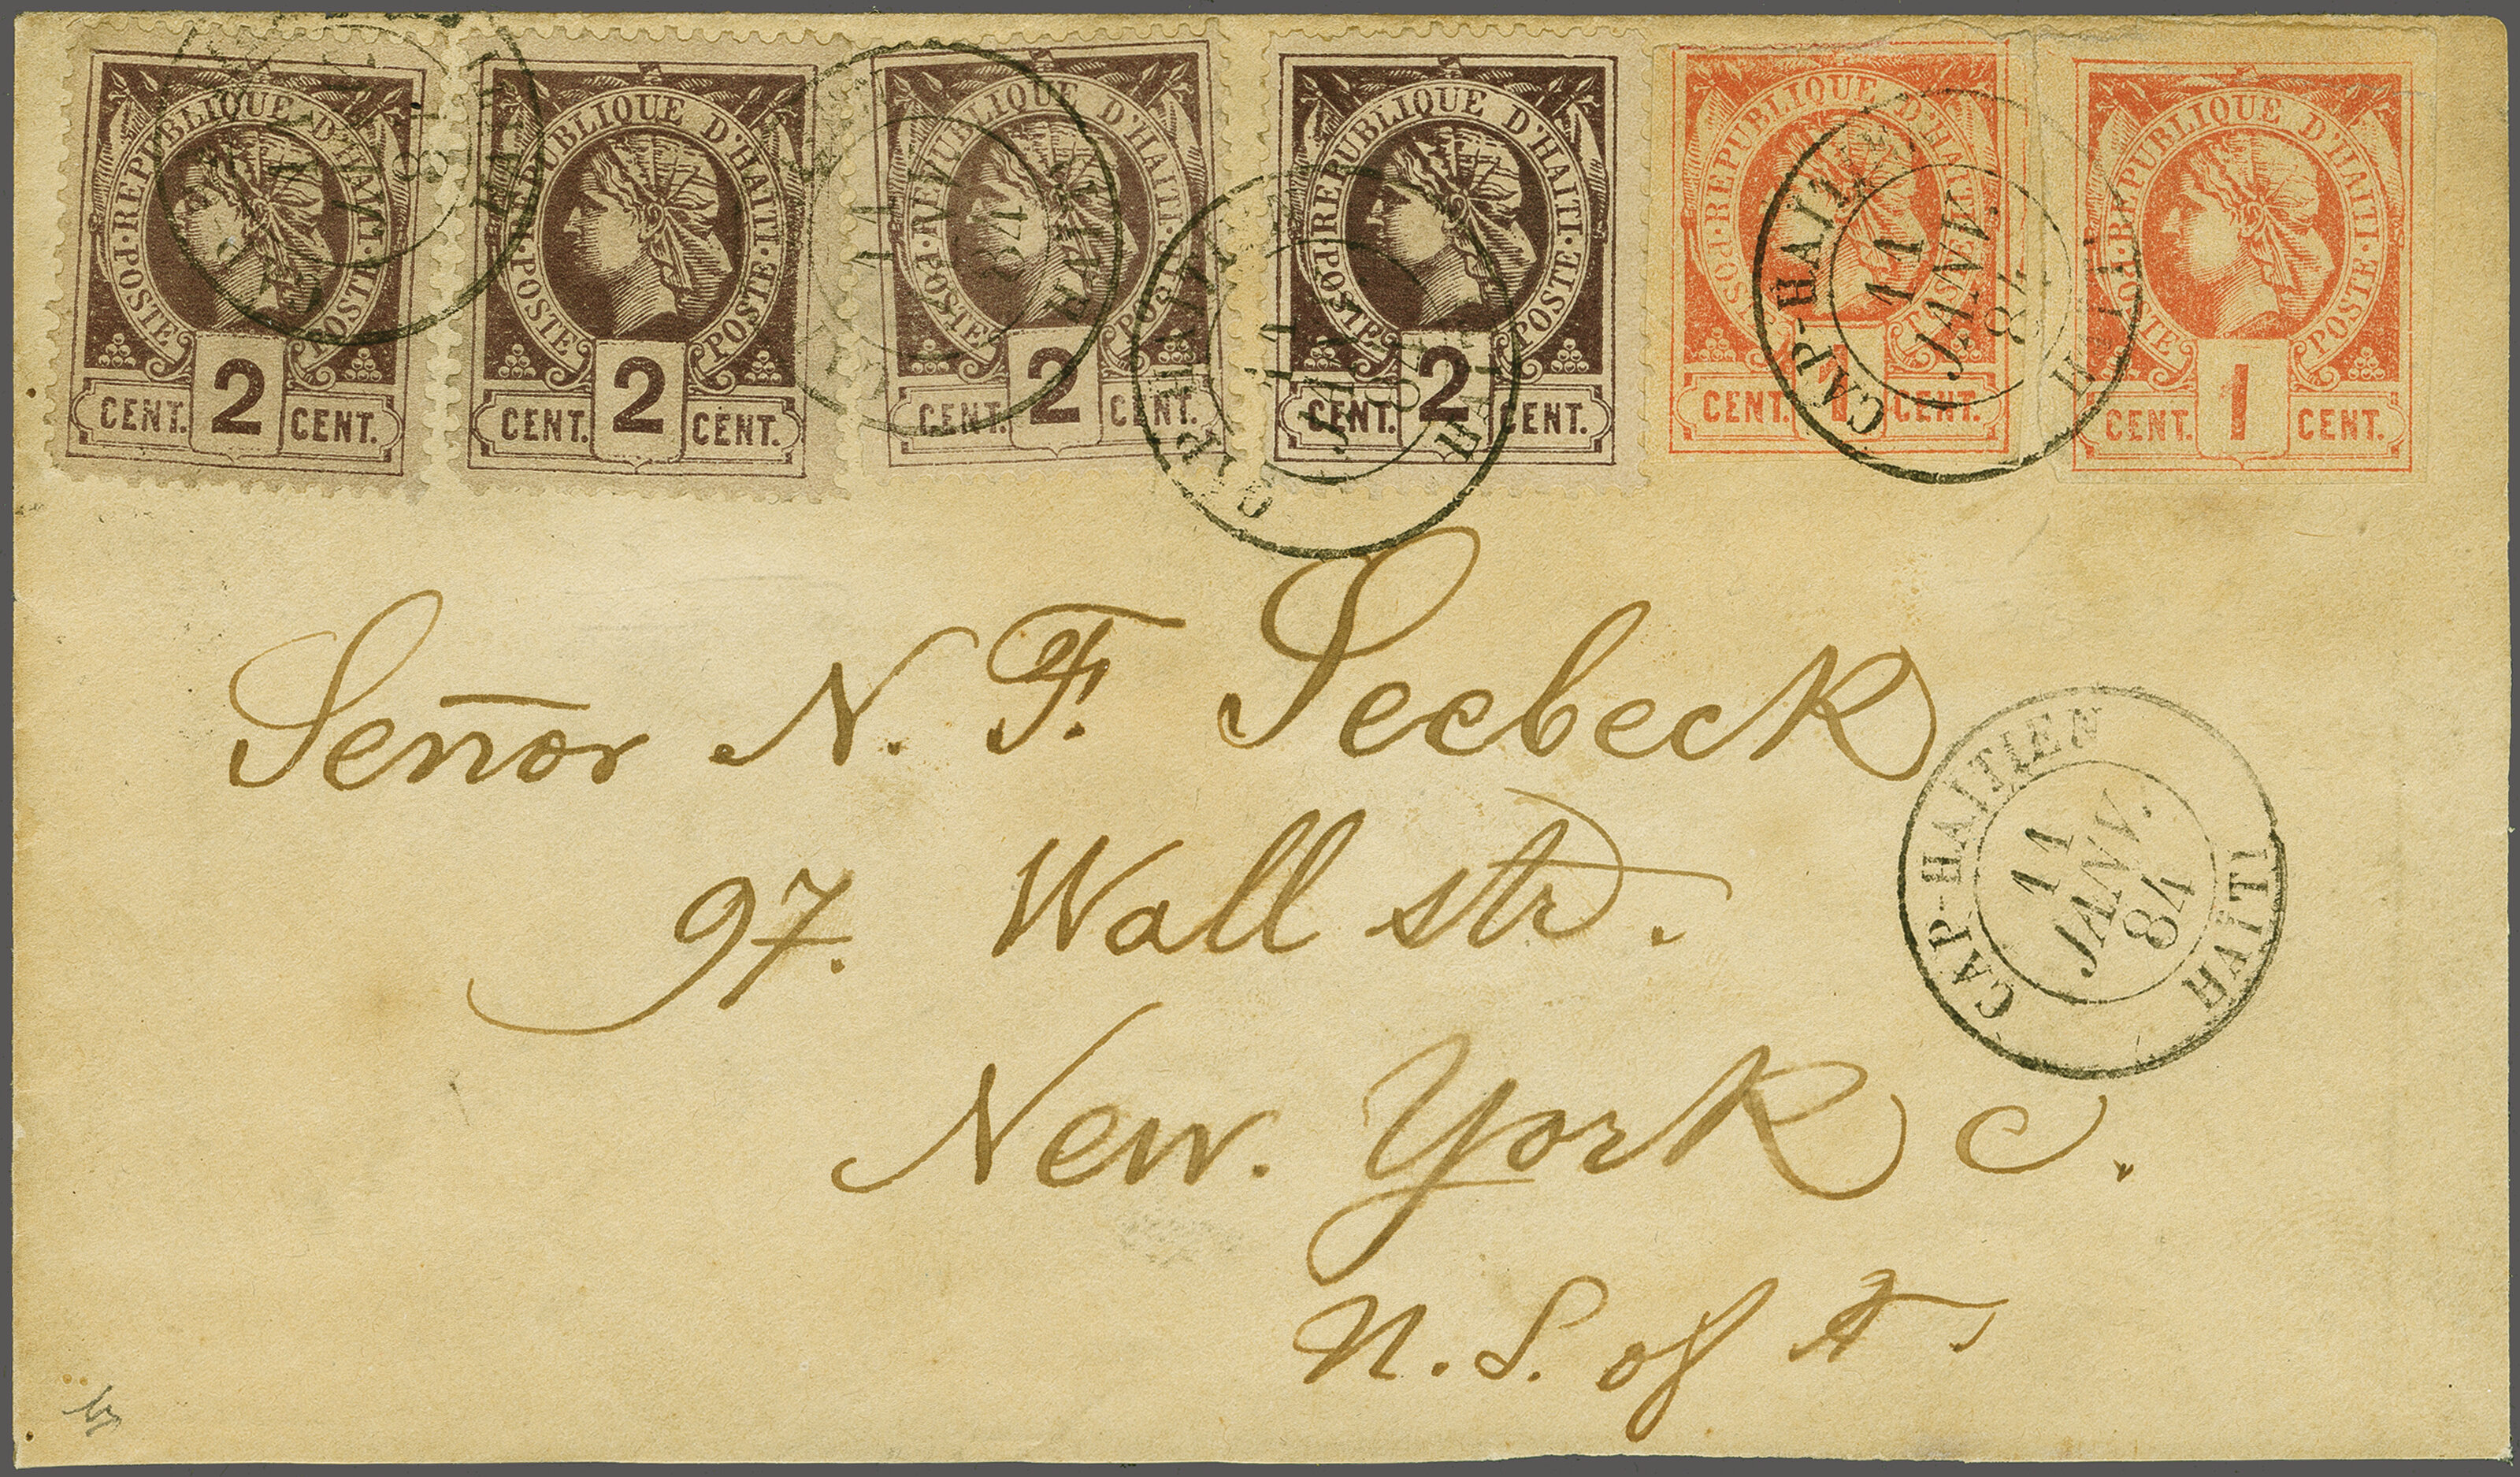 RÉPUBLIQUE D'HAITI
POSTE
POSTE
CENT. 2 CENT.
RÉPUBLIQUE D'HAITI
POSTE
POSTE
CENT. 2 CENT.
RÉPUBLIQUE D'HAITI
POSTE
POSTE
CENT. 2 CENT.
RÉPUBLIQUE D'HAITI
POSTE
POSTE
CENT. 2 CENT.
RÉPUBLIQUE D'HAITI
POSTE
CENT. 1 CENT.
RÉPUBLIQUE D'HAITI
POSTE
POSTE
CENT. 1 CENT.
CAP-HAITIEN
11
JANV.
84
HAÏTI
Señor N. F. Seebeck
97. Wall str.
New. York C.
U. S. of A
CAP-HAITIEN
11
JANV.
84
HAÏTI